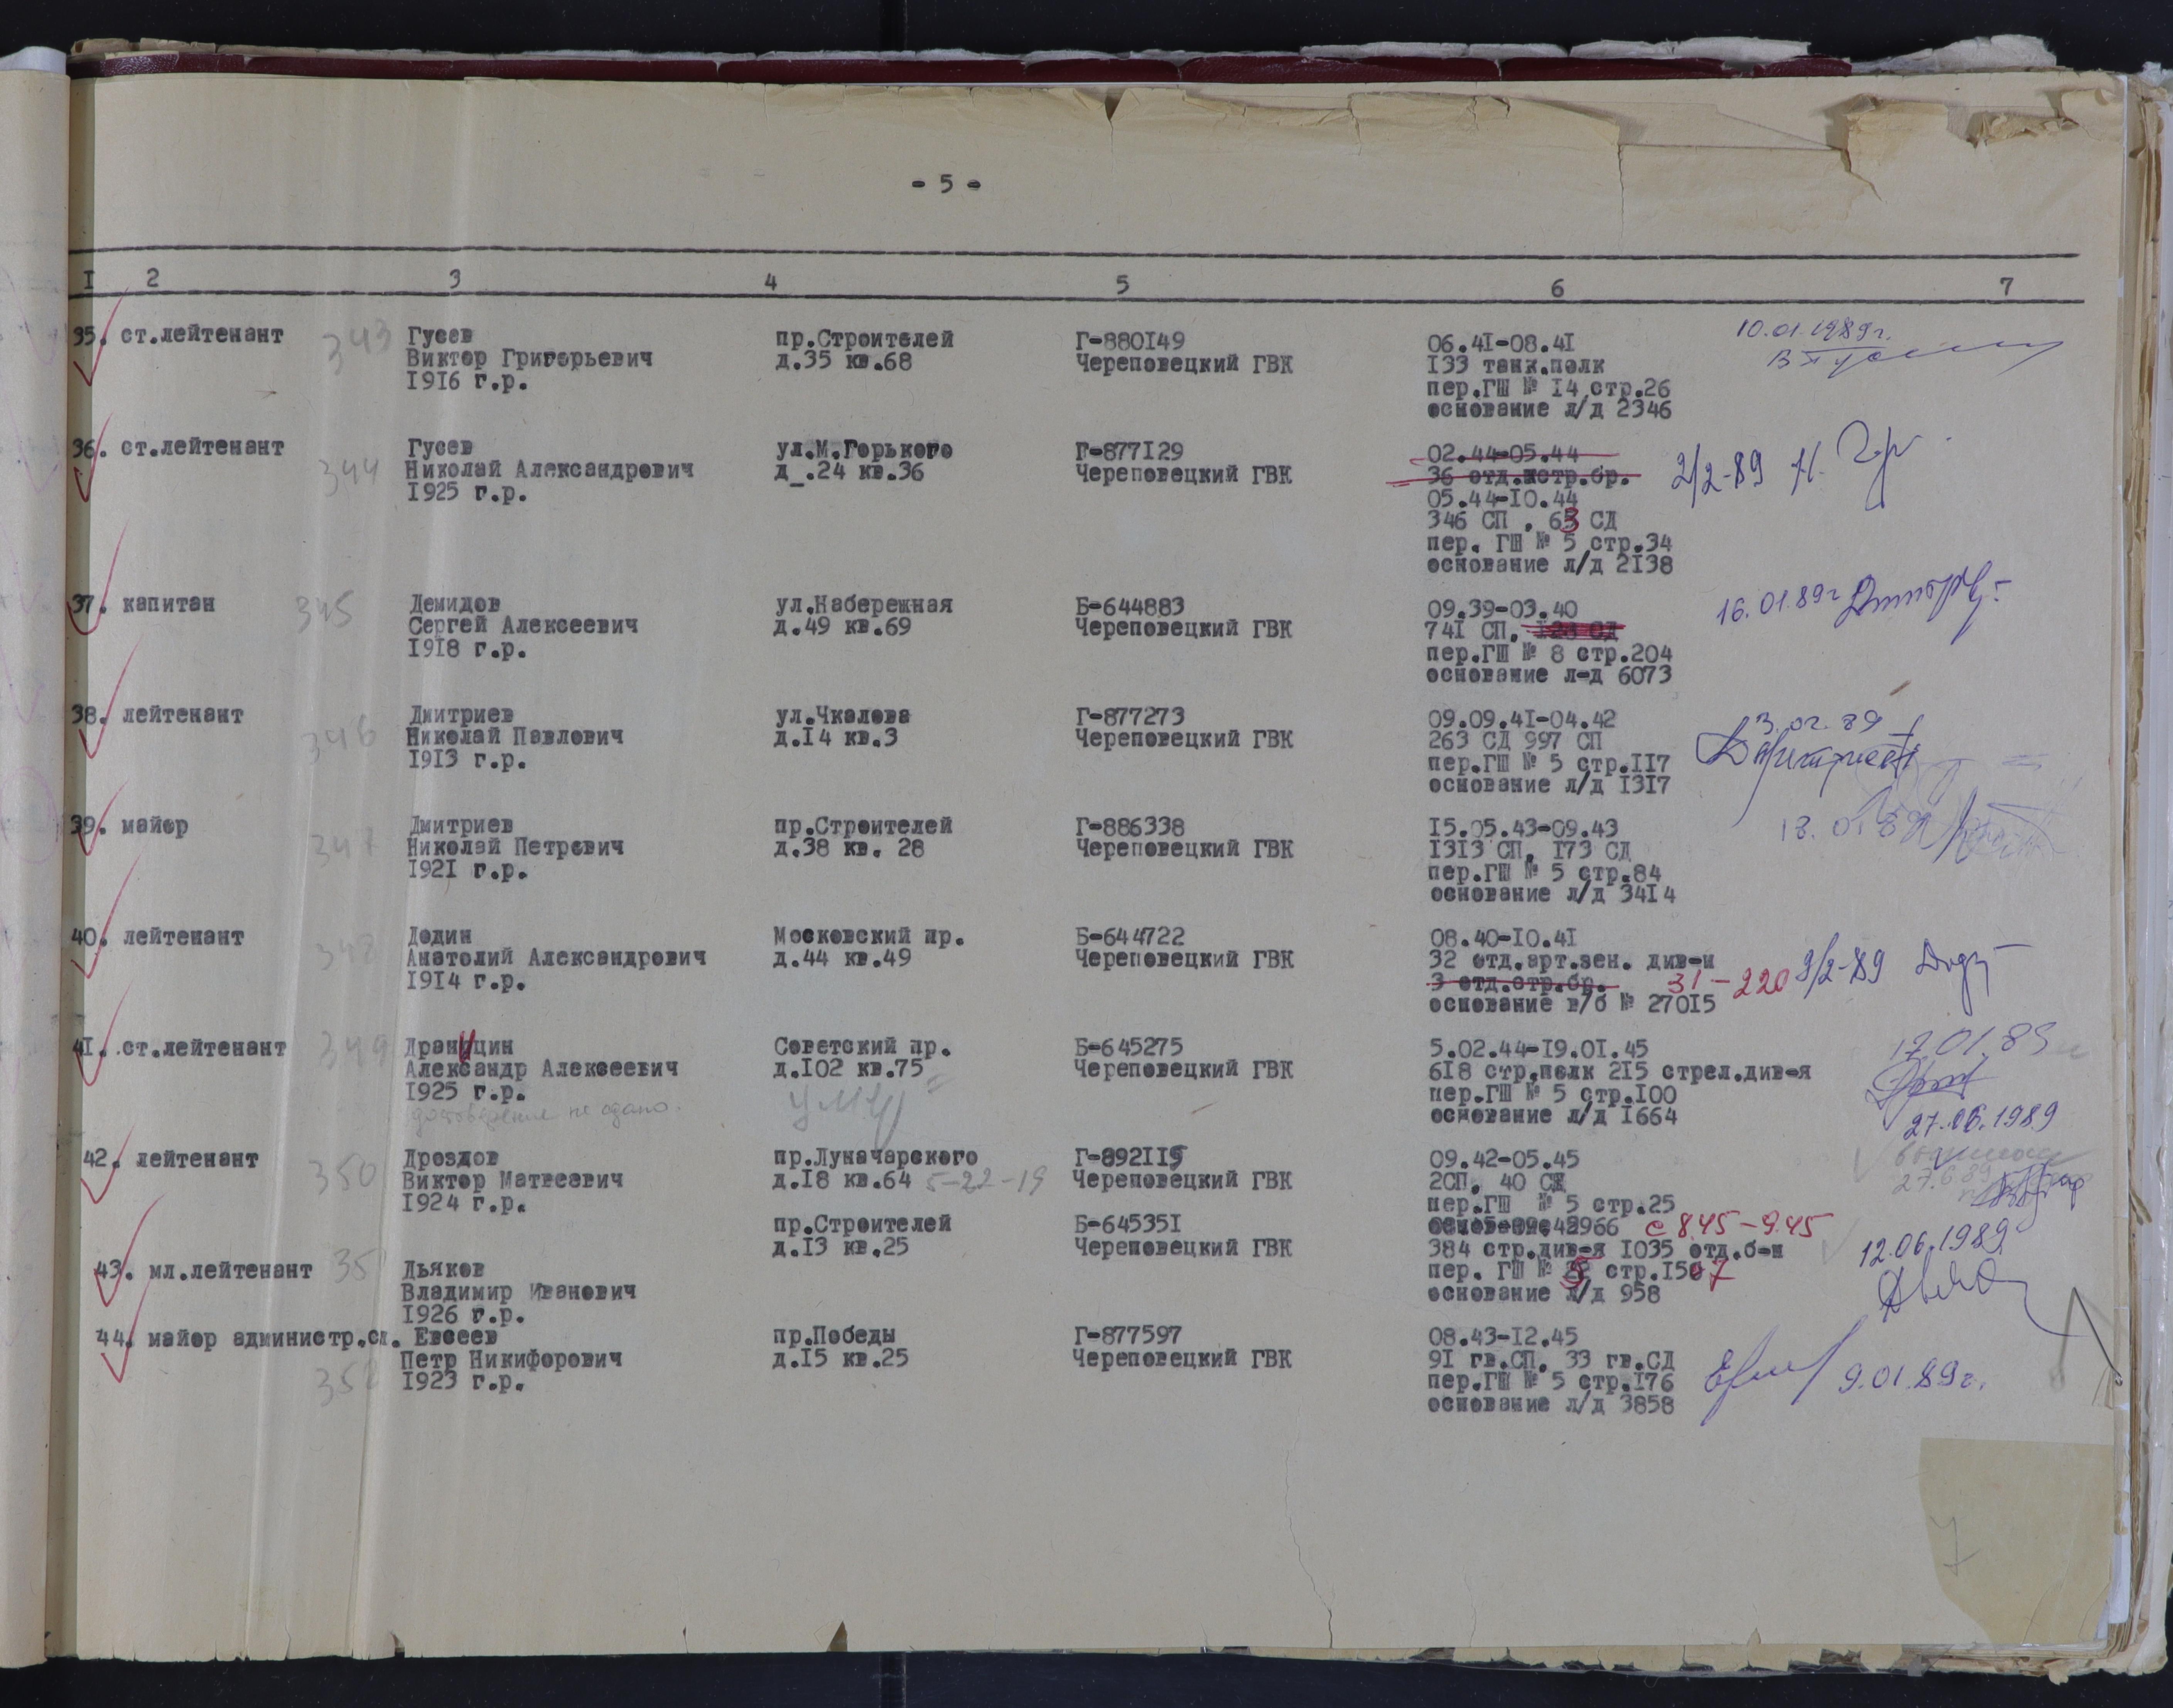 - 5 -
I 2 3 4 5 6 7
35. ст.лейтенант 343 Гусев пр.Строителей Г-880149 06.41-08.41 10.01.1989г.
Виктор Григорьевич д.35 кв.68 Череповецкий ГВК 133 танк.полк
1916 г.р. пер.ГШ № 14 стр.26
основание л/д 2346
36. ст.лейтенант 344 Гусев ул.М.Горького Г-877129 02.44-05.44 2/2-89
Николай Александрович д_.24 кв.36 Череповецкий ГВК 36 отд.истр.бр.
1925 г.р. 05.44-10.44
346 СП , 63 СД
пер. ГШ № 5 стр.34
основание л/д 2138
37. капитан 345 Демидов ул.Набережная Б-644883 09.39-03.40 16.01.89г
Сергей Алексеевич д.49 кв.69 Череповецкий ГВК 741 СП,
1918 г.р. пер.ГШ № 8 стр.204
основание л-д 6073
38. лейтенант 346 Дмитриев ул.Чкалова Г-877273 09.09.41-04.42 3.02.89
Николай Павлович д.14 кв.3 Череповецкий ГВК 263 СД 997 СП
1913 г.р. пер.ГШ № 5 стр.117
основание л/д 1317
39. майор 347 Дмитриев пр.Строителей Г-886338 15.05.43-09.43
Николай Петрович д.38 кв. 28 Череповецкий ГВК 1313 СП, 173 СД
1921 г.р. пер.ГШ № 5 стр.84
основание л/д 3414
40. лейтенант 348 Додин Московский пр. Б-644722 08.40-10.41
Анатолий Александрович д.44 кв.49 Череповецкий ГВК 32 отд.арт.зен. див-н
1914 г.р. 3 отд.стр.бр. 31-220
основание в/б № 27015
41. ст.лейтенант 349 Драницин Советский пр. Б-645275 5.02.44-19.01.45 17.01.89
Александр Алексеевич д.102 кв.75 Череповецкий ГВК 618 стр.полк 215 стрел.див-я
1925 г.р. пер.ГШ № 5 стр.100
не сдано. основание л/д 1664 27.06.1989
42. лейтенант 350 Дроздов пр.Луначарского Г-892115 09.42-05.45
Виктор Матвеевич д.18 кв.64 5-22-19 Череповецкий ГВК 2СП, 40 СД 27.6.89
1924 г.р. пер.ГШ № 5 стр.25
пр.Строителей Б-645351 с 8.45-9.45
д.13 кв.25 Череповецкий ГВК 384 стр.див-я 1035 отд.б-н 12.06.1989
43. мл.лейтенант 351 Дьяков пер. ГШ № 5 стр.157
Владимир Иванович основание л/д 958
1926 г.р.
44. майор администр.сл. Евсеев пр.Победы Г-877597 08.43-12.45
352 Петр Никифорович д.15 кв.25 Череповецкий ГВК 91 гв.СП, 33 гв.СД 9.01.89г.
1923 г.р. пер.ГШ № 5 стр.176
основание л/д 3858